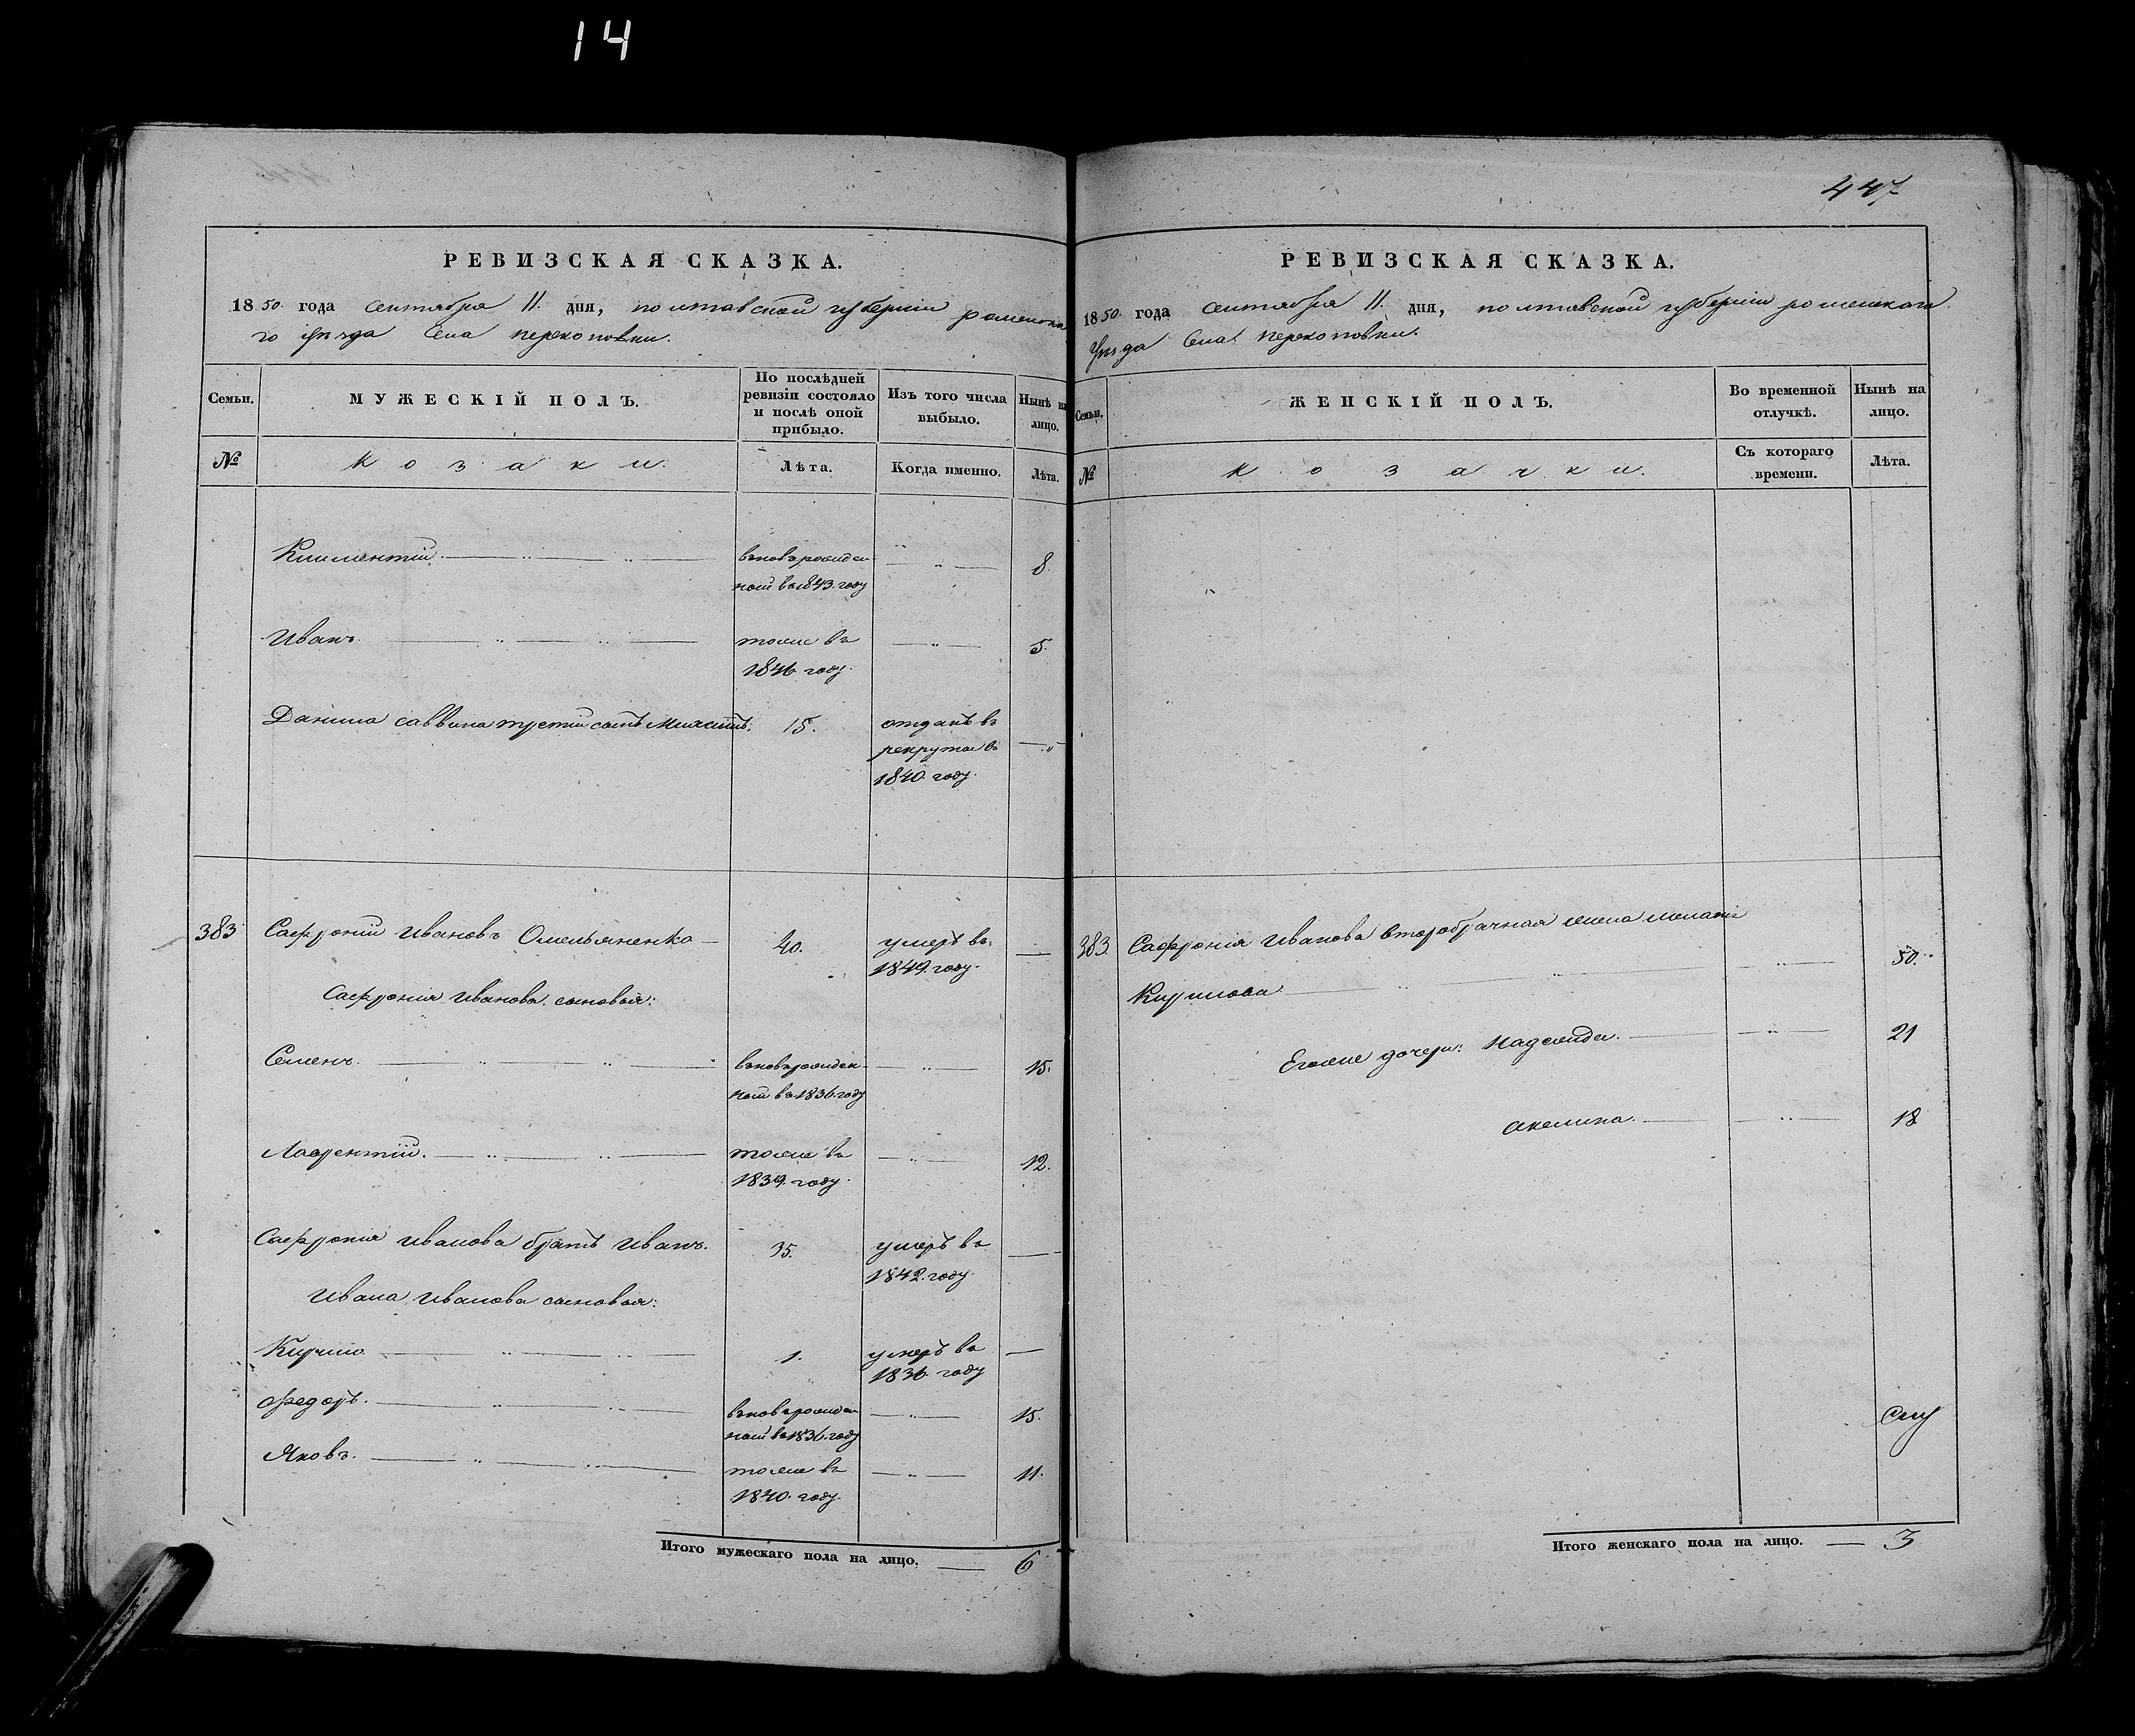 14
447
РЕВИЗСКАЯ СКАЗКА.
1850 года сентября 11 дня, полтавской губерніи роменска
го уѣзда села перекоповки.
Семьи.
МУЖЕСКІЙ ПОЛЪ.
По послѣдней
ревизіи состояло
и послѣ оной
прибыло.
Изъ того числа
выбыло.
Нынѣ на
лицо.
№
козаки.
Лѣта.
Когда именно.
Лѣта.
Климентій вновьрожден 8
ный въ 1843 году
Иванъ тоже въ 5.
1846 году.
Данила саввина третій сынъ 15. отданъ въ
рекруты въ
1840 году.
383 Софроній Ивановъ Омельяненко 40. умеръ въ
1849 году.
Софронія Иванова сыновья:
Семенъ. вновьрожден 15.
ный въ 1836 году
Лаврентій. тоже въ 12.
1839. году.
Софронія Иванова братъ Иванъ. 35. умеръ въ
1842. году.
Ивана Иванова сыновья:
Кирило 1. умеръ въ
1836 году
Федоръ. вновьрожден 15.
ный въ 1836. году
Яковъ. тоже въ 11.
1840. году.
Итого мужескаго пола на лицо. 6
РЕВИЗСКАЯ СКАЗКА.
1850 года сентября 11 дня, полтавской губерніи роменскаго
уѣзда села перекоповки.
Семьи.
ЖЕНСКІЙ ПОЛЪ.
Во временной
отлучкѣ.
Нынѣ на
лицо.
№
козачки.
Съ котораго
времени.
Лѣта.
383. Софронія Иванова второбрачная жена меланія
Кирилова 50.
Егоже дочери: Надежда. 21
акелина. 18
Итого женскаго пола на лицо. 3